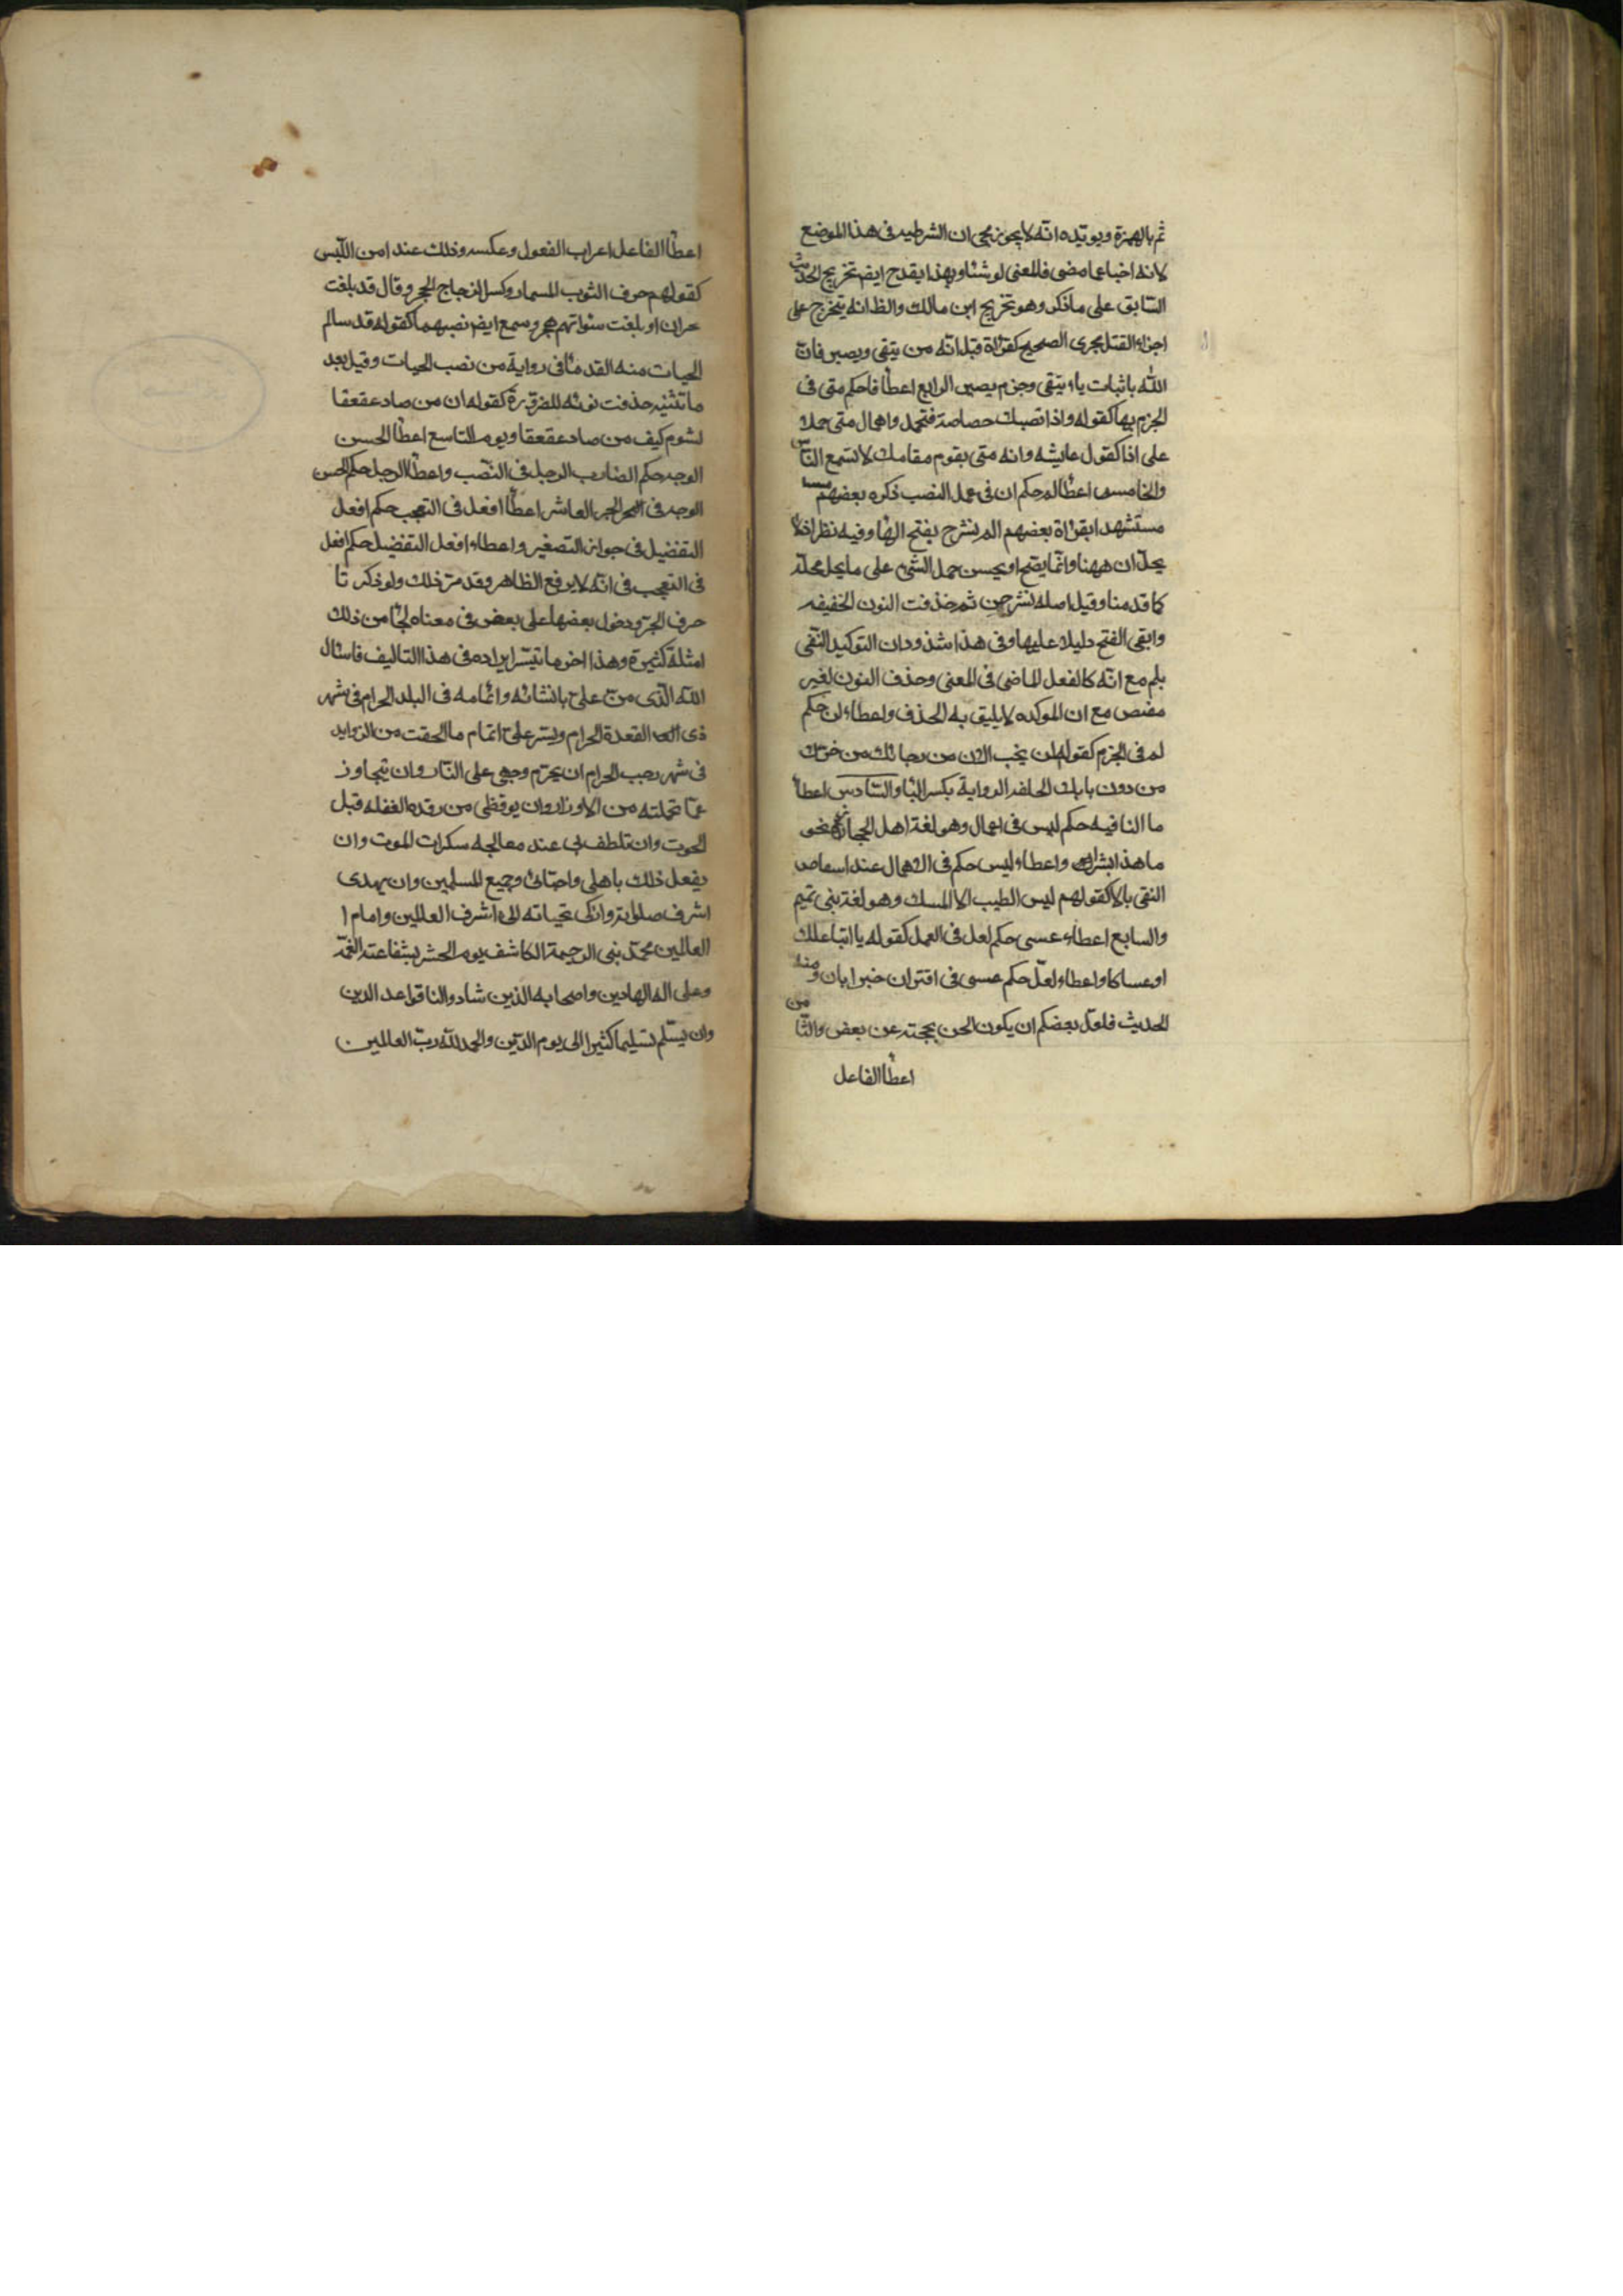 ثم بالهمزة ويويّده انّه لا يجوز مجى ان الشرطيه فى هذا الموضع
لانه اخباعا مضى فالمعنى لو شئنا وبهذا يقدح ايض تخريج الحديث
السّابق على ما ذكر وهو تخريج ابن مالك والظ انه يتخرج على
اجراء القتل مجرى الصحيح كقراءة قبل انّه من يتقى ويصبر فانّ
اللّه باثبات ياء يتقى وجزم يصبر الرابع اعطاء اذا حكم متى فى
الجزم بها كقوله واذا تصبك حصاصة فتجمل واهمال متى حملا
على اذا كقول عايشه وانه متى يقوم مقامك لا تسمع النّاس
والخامس اعطاء لم حكم ان فى عمل النصب ذكره بعضهم
مستشهدا بقراءة بعضهم الم نشرح بفتح الهاء وفيه نظر اذ لا
يحلّ ان ههنا وانّما يقبح او يحسن حمل الشىء على ما يحل محلّه
كما قدمنا وقيل اصله نشرحن ثم حذفت النون الخفيفه
وابقى الفتح دليلا عليها وفى هذا شذوذان التوكيد النّفى
بلم مع انّه كالفعل الماضى فى المعنى وحذف النون لغير
مقتص مع ان الموكده لا يليق به الحذف واعطاء لن حكم
لم فى الجزم كقوله لن يخب الان من رجائك من حرّك
من دون بابك الحلقه الرواية بكسر الباء والسّادس اعطاء
ما النافيه حكم ليس فى اعمال وهو لغة اهل الحجاز نحو
ما هذا بشرا واعطاء ليس حكم فى الاهمال عند
النقى بالا كقولهم ليس الطيب الا المسك وهو لغة بنى تميم
والسابع اعطاء عسى حكم لعل فى العمل كقوله يا ابتا علك
او عساكا واعطاء لعلّ حكم عسى فى اقتران خبرا بان ومنه
الحديث فلعل بعضكم ان يكون الحن بحجته عن بعض والثّامن
اعطاء الفاعل
اعطاء الفاعل اعراب المفعول وعكسه وذلك عند امن اللّبس
كقولهم حرف الثوب المسمار وكسر الزجاج الحجر وقال قد بلغت
نجران او بلغت سواتهم هجر وسمع ايض نصبهما كقوله قد سالم
الحيات منه القدما فى رواية من نصب الحيات وقيل بعد
ما تثنيه حذفت نونه للضرورة كقوله ان من صاد عقعقا
لشوم كيف من صاد عقعقا وبوم التاسع اعطاء الحسن
الوجه حكم الضارب الرجل فى النّصب واعطاء الرجل حكم الحسن
الوجه فى الجر العاشر اعطاء افعل فى التعجب حكم افعل
التفضيل فى جواز التصغير واعطاء افعل التفضيل حكم افعل
فى التعجب فى انّه لا يرفع الظاهر وقد مرّ ذلك ولو ذكرنا
حرف الجرّ ودخول بعضها على بعض فى معناه لجاء من ذلك
امثلة كثيرة وهذا اخر ما تيسّر ايراده فى هذا التاليف فاسئال
اللّه الّذى منّ علىّ بانشائه واتمامه فى البلد الحرام فى شهر
ذى القعدة الحرام ويسّر علىّ اتمام ما الحقت من الزوايد
فى شهر رجب الحرام ان يحرّم وجهى على النّار وان يتجاوز
عمّا تحملته من الاوزار وان يوقظنى من رقده الغفله قبل
الموت وان يلطف بى عند معالجه سكرات الموت وان
يفعل ذلك باهلى واحبّائى وجميع المسلمين وان يهدى
اشرف صلواته وازكى تحياته الى اشرف العالمين وامام ا
العالمين محمّد نبى الرحمة الكاشف يوم الحشر بشفاعته الغمّة
وعلى اله الهادين واصحابه الذين شادوا لنا قواعد الدين
وان يسّلم تسليما كثيرا الى يوم الدّين والحمد للّه ربّ العالمين